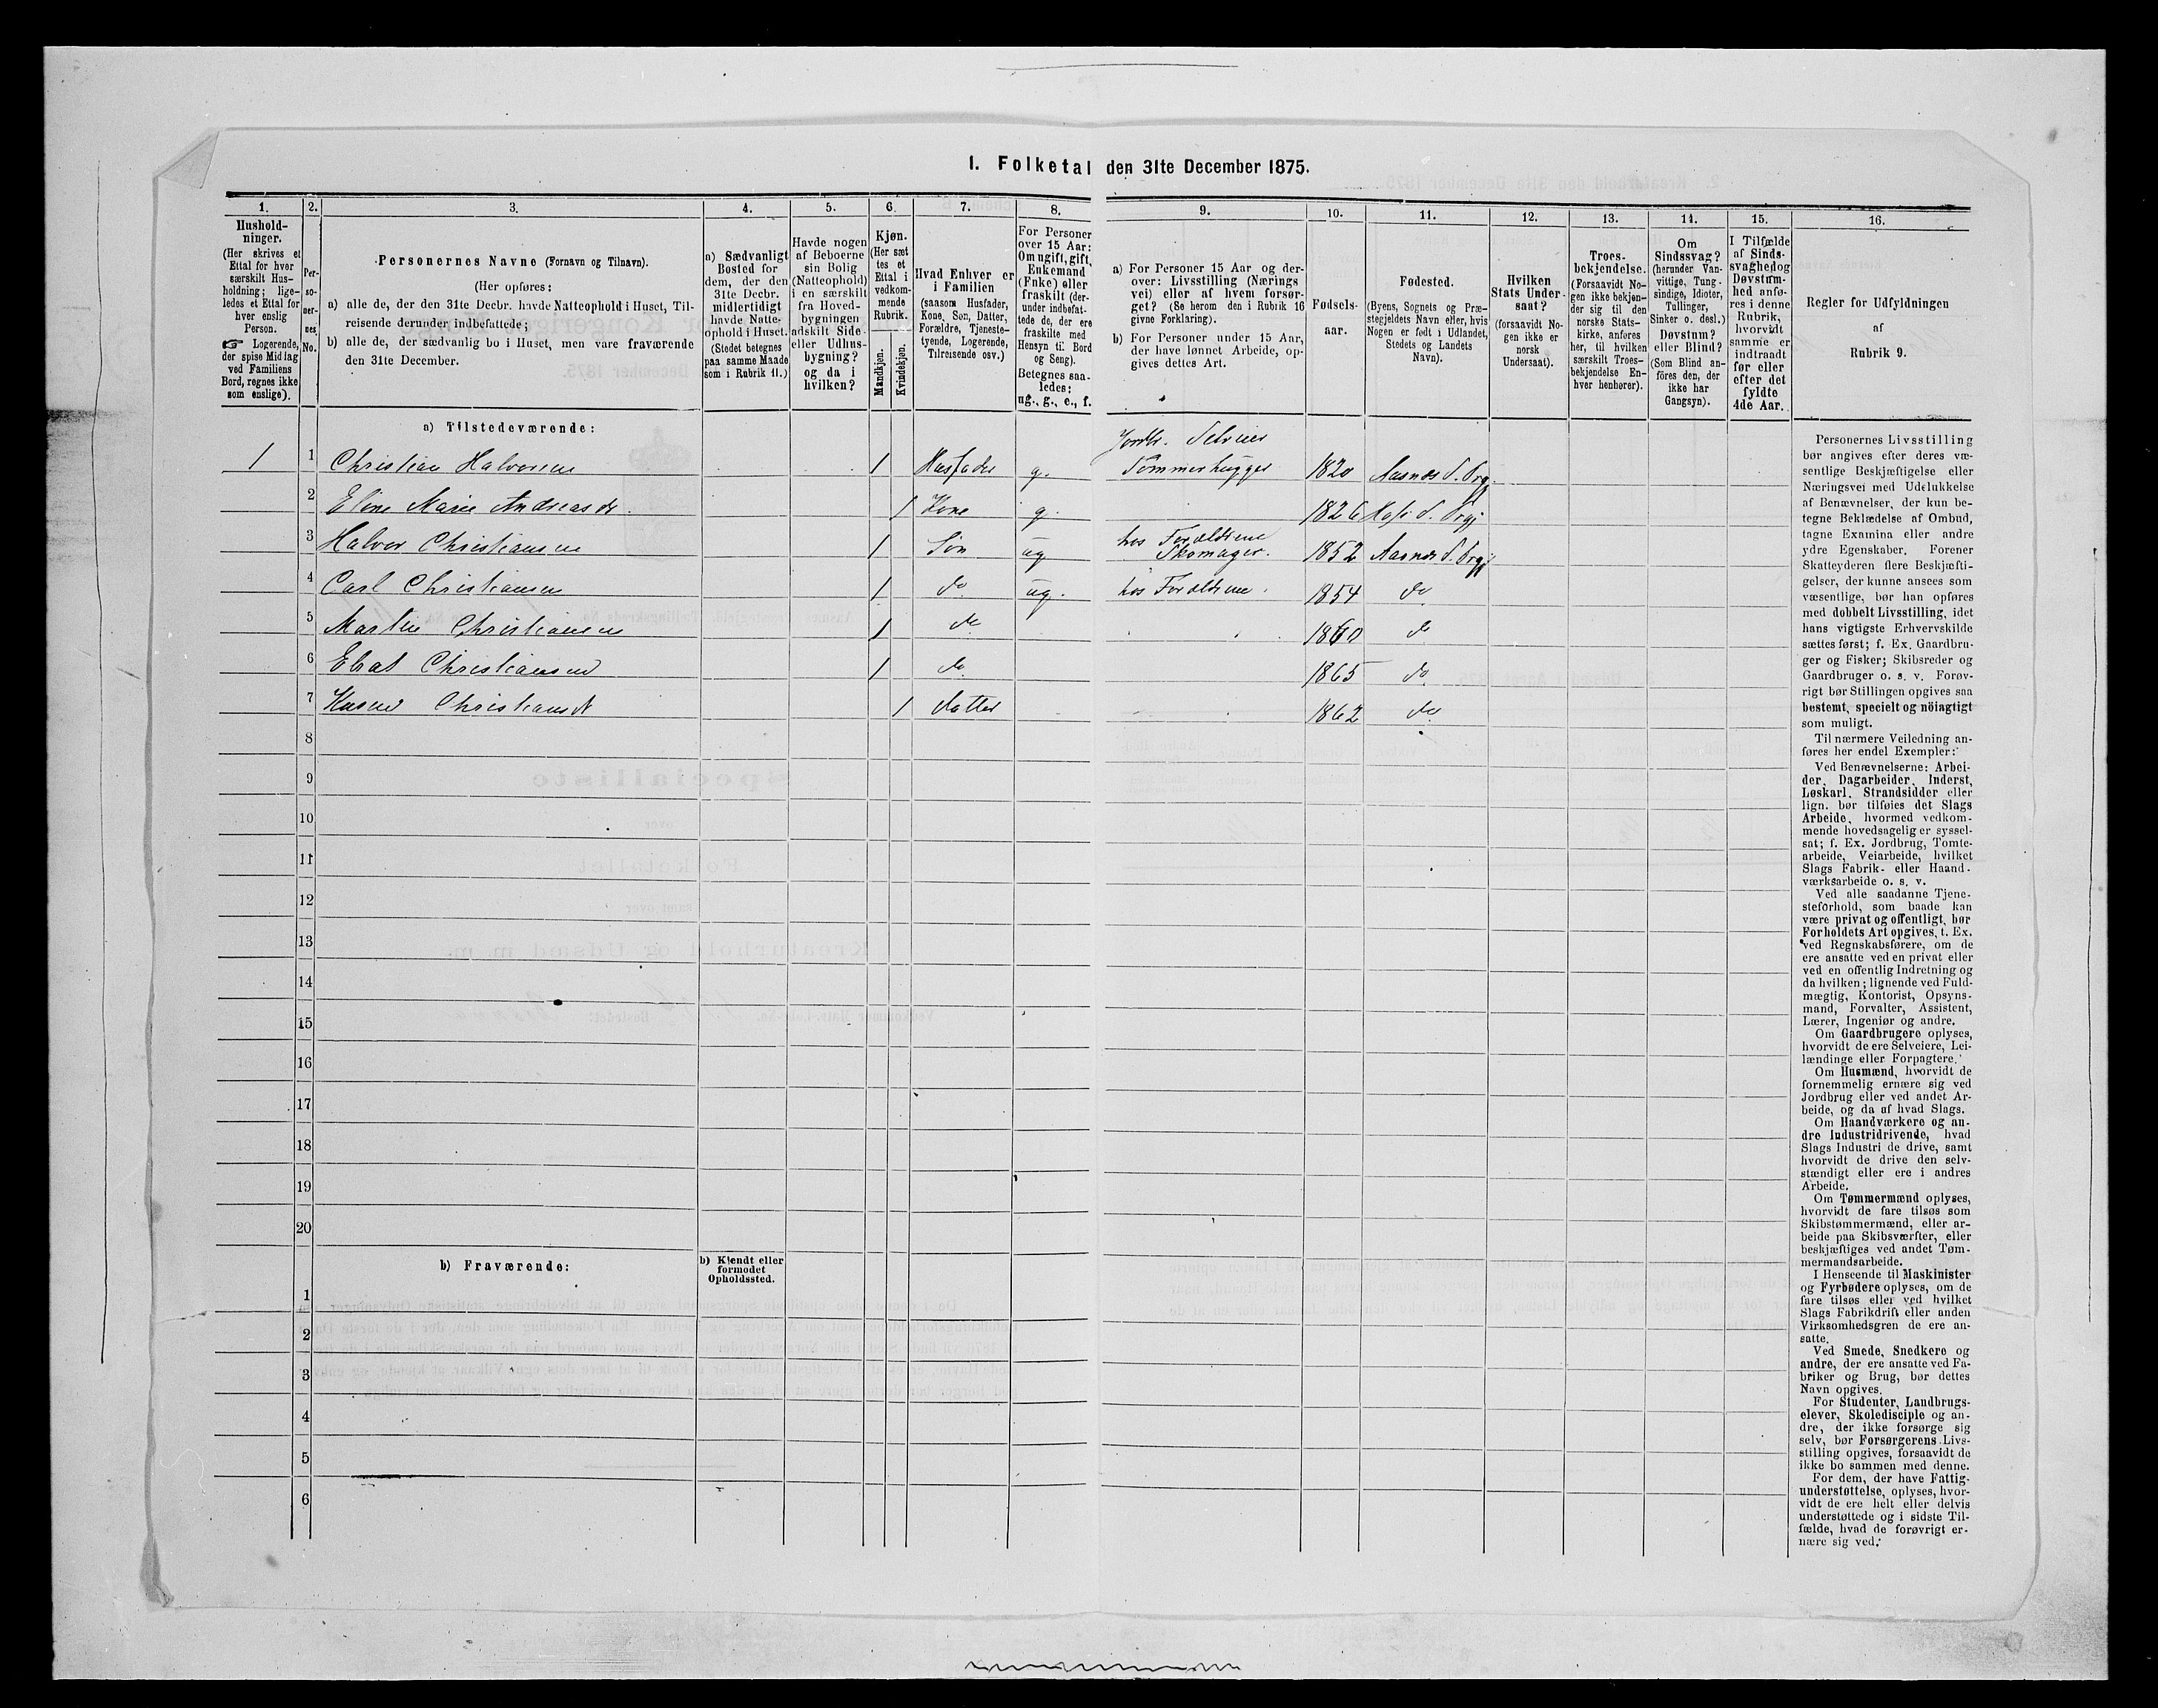 I. Folketal den 31te December 1875.
1. 2. 3. 4. 5. 6. 7. 8. 9. 10. 11. 12. 13. 14. 15. 16.
Hushold-
ninger.
(Her skrives et
Ettal for hver
særskilt Hus-
holdning; lige-
ledes et Ettal for
hver enslig
Person.
☞ Logerende,
der spise Middag
ved Familiens
Bord, regnes ikke
som enslige).
Per-
so-
ner-
nes
No.
Personernes Navne (Fornavn og Tilnavn).
(Her opføres:
a) alle de, der den 31te Decbr. havde Natteophold i Huset, Til-
reisende derunder indbefattede;
b) alle de, der sædvanlig bo i Huset, men vare fraværende
den 31te December.
a) Sædvanligt
Bosted for
dem, der den
31te Decbr.
midlertidigt
havde Natte-
ophold i Huset.
(Stedet betegnes
paa samme Maade
som i Rubrik 11.)
Havde nogen
af Beboerne
sin Bolig
(Natteophold)
i en særskilt
fra Hoved-
bygningen
adskilt Side-
eller Udhus-
bygning?
og da i
hvilken?
Kjøn.
(Her sæt
tes et
Ettal i
vedkom-
mende
Rubrik.
Mandkjøn.
Kvindekjøn.
Hvad Enhver er
i Familien
(saasom Husfader,
Kone, Søn, Datter,
Forældre, Tjeneste-
tyende, Logerende,
Tilreisende osv.)
For Personer
over 15 Aar:
Om ugift, gift,
Enkemand
(Enke) eller
fraskilt (der-
under indbefat-
tede de, der ere
fraskilte med
Hensyn til Bord
og Seng).
Betegnes saa-
ledes:
ug., g., e., f.
a) For Personer 15 Aar og der-
over: Livsstilling (Nærings
vei) eller af hvem forsør-
get? (Se herom den i Rubrik 16
givne Forklaring).
b) For Personer under 15 Aar,
der have lønnet Arbeide, op-
gives dettes Art.
Fødsels-
aar.
Fødested.
(Byens, Sognets og Præ-
stegjeldets Navn eller, hvis
Nogen er født i Udlandet,
Stedets og Landets
Navn).
Hvilken
Stats Under-
saat?
(forsaavidt No-
gen ikke er
norsk
Undersaat).
Troes-
bekjendelse.
(Forsaavidt No-
gen ikke bekjen-
der sig til den
norske Stats-
kirke, anføres
her, til hvilken
særskilt Troes-
bekjendelse En-
hver henhører).
Om
Sindssvag?
(herunder Van-
vittige, Tung-
sindige, Idioter,
Tullinger,
Sinker o. desl.)
Døvstum?
eller Blind?
(Som Blind an-
føres den, der
ikke har
Gangsyn).
I Tilfælde
af Sinds-
svaghed og
Døvstum-
hed anfø-
res i denne
Rubrik,
hvorvidt
samme er
indtraadt
før eller
efter det
fyldte
4de Aar.
Regler for Udfyldningen
af
Rubrik 9.
a) Tilstedeværende:
Jordb. Selveier
1 1 Christian Halvorsen 1 Husfader g. Tømmerhugger 1820 Aasnæs S. Prgj.
2 Eline Marie Andreasdr. 1 Kone g. 1826 Hof S. Prgj
hos Forældrene
3 Halvor Christiansen 1 Søn ug Skomager. 1852 Aasnæs S. Prgj
4 Carl Christiansen 1 do ug. hos Forældrene. 1854 do
5 Martin Christiansen 1 do 1860 do
6 Christiansen 1 do 1865 do
7 Christiansdt 1 datter 1862 do
8
9
10
11
12
13
14
15
16
17
18
19
20
b) Fraværende:
b) Kjendt eller
formodet
Opholdssted.
1
2
3
4
5
6
Personernes Livsstilling
bør angives efter deres væ-
sentlige Beskjæftigelse eller
Næringsvei med Udelukkelse
af Benævnelser, der kun be-
tegne Beklædelse af Ombud,
tagne Examina eller andre
ydre Egenskaber. Forener
Skatteyderen flere Beskjæfti-
gelser, der kunne ansees som
væsentlige, bør han opføres
med dobbelt Livsstilling, idet
hans vigtigste Erhvervskilde
sættes først; f. Ex. Gaardbru-
ger og Fisker; Skibsreder og
Gaardbruger o. s. v. Forøv-
rigt bør Stillingen opgives saa
bestemt, specielt og nöiagtigt
som muligt.
Til nærmere Veiledning an-
føres her endel Exempler:
Ved Benævnelserne: Arbei-
der, Dagarbeider, Inderst,
Løskarl, Strandsidder eller
lign. bør tilføies det Slags
Arbeide, hvormed vedkom-
mende hovedsagelig er syssel-
sat; f. Ex. Jordbrug, Tomte-
arbeide, Veiarbeide, hvilket
Slags Fabrik- eller Haand-
værksarbeide o. s. v.
Ved alle saadanne Tjene-
steforhold, som baade kan
være privat og offentligt, bør
Forholdets Art opgives, t. Ex.
ved Regnskabsførere, om de
ere ansatte ved en privat eller
ved en offentlig Indretning og
da hvilken; lignende ved Fuld-
mægtig, Kontorist, Opsyns-
mand, Forvalter, Assistent,
Lærer, Ingeniør og andre.
Om Gaardbrugere oplyses,
hvorvidt de ere Selveiere, Lei-
lændinge eller Forpagtere.
Om Husmænd, hvorvidt de
fornemmelig ernære sig ved
Jordbrug eller ved andet Ar-
beide, og da af hvad Slags.
Om Haandværkere og an-
dre Industridrivende, hvad
Slags Industri de drive, samt
hvorvidt de drive den selv-
stændigt eller ere i andres
Arbeide.
Om Tømmermænd oplyses,
hvorvidt de fare tilsøs som
Skibstømmermænd, eller ar-
beide paa Skibsværfter, eller
beskjæftiges ved andet Tøm-
mermandsarbeide.
I Henseende til Maskinister
og Fyrbødere oplyses, om de
fare tilsøs eller ved hvilket
Slags Fabrikdrift eller anden
Virksomhedsgren de ere an-
satte.
Ved Smede, Snedkere og
andre, der ere ansatte ved Fa-
briker og Brug, bør dettes
Navn opgives.
For Studenter, Landbrugs-
elever, Skoledisciple og an-
dre, der ikke forsørge sig
selv, bør Forsørgerens Livs-
stilling opgives, forsaavidt de
ikke bo sammen med denne.
For dem, der have Fattig-
understøttelse, oplyses, hvor-
vidt de ere helt eller delvis
understøttede og i sidste Til-
fælde, hvad de forøvrigt er-
nære sig ved.